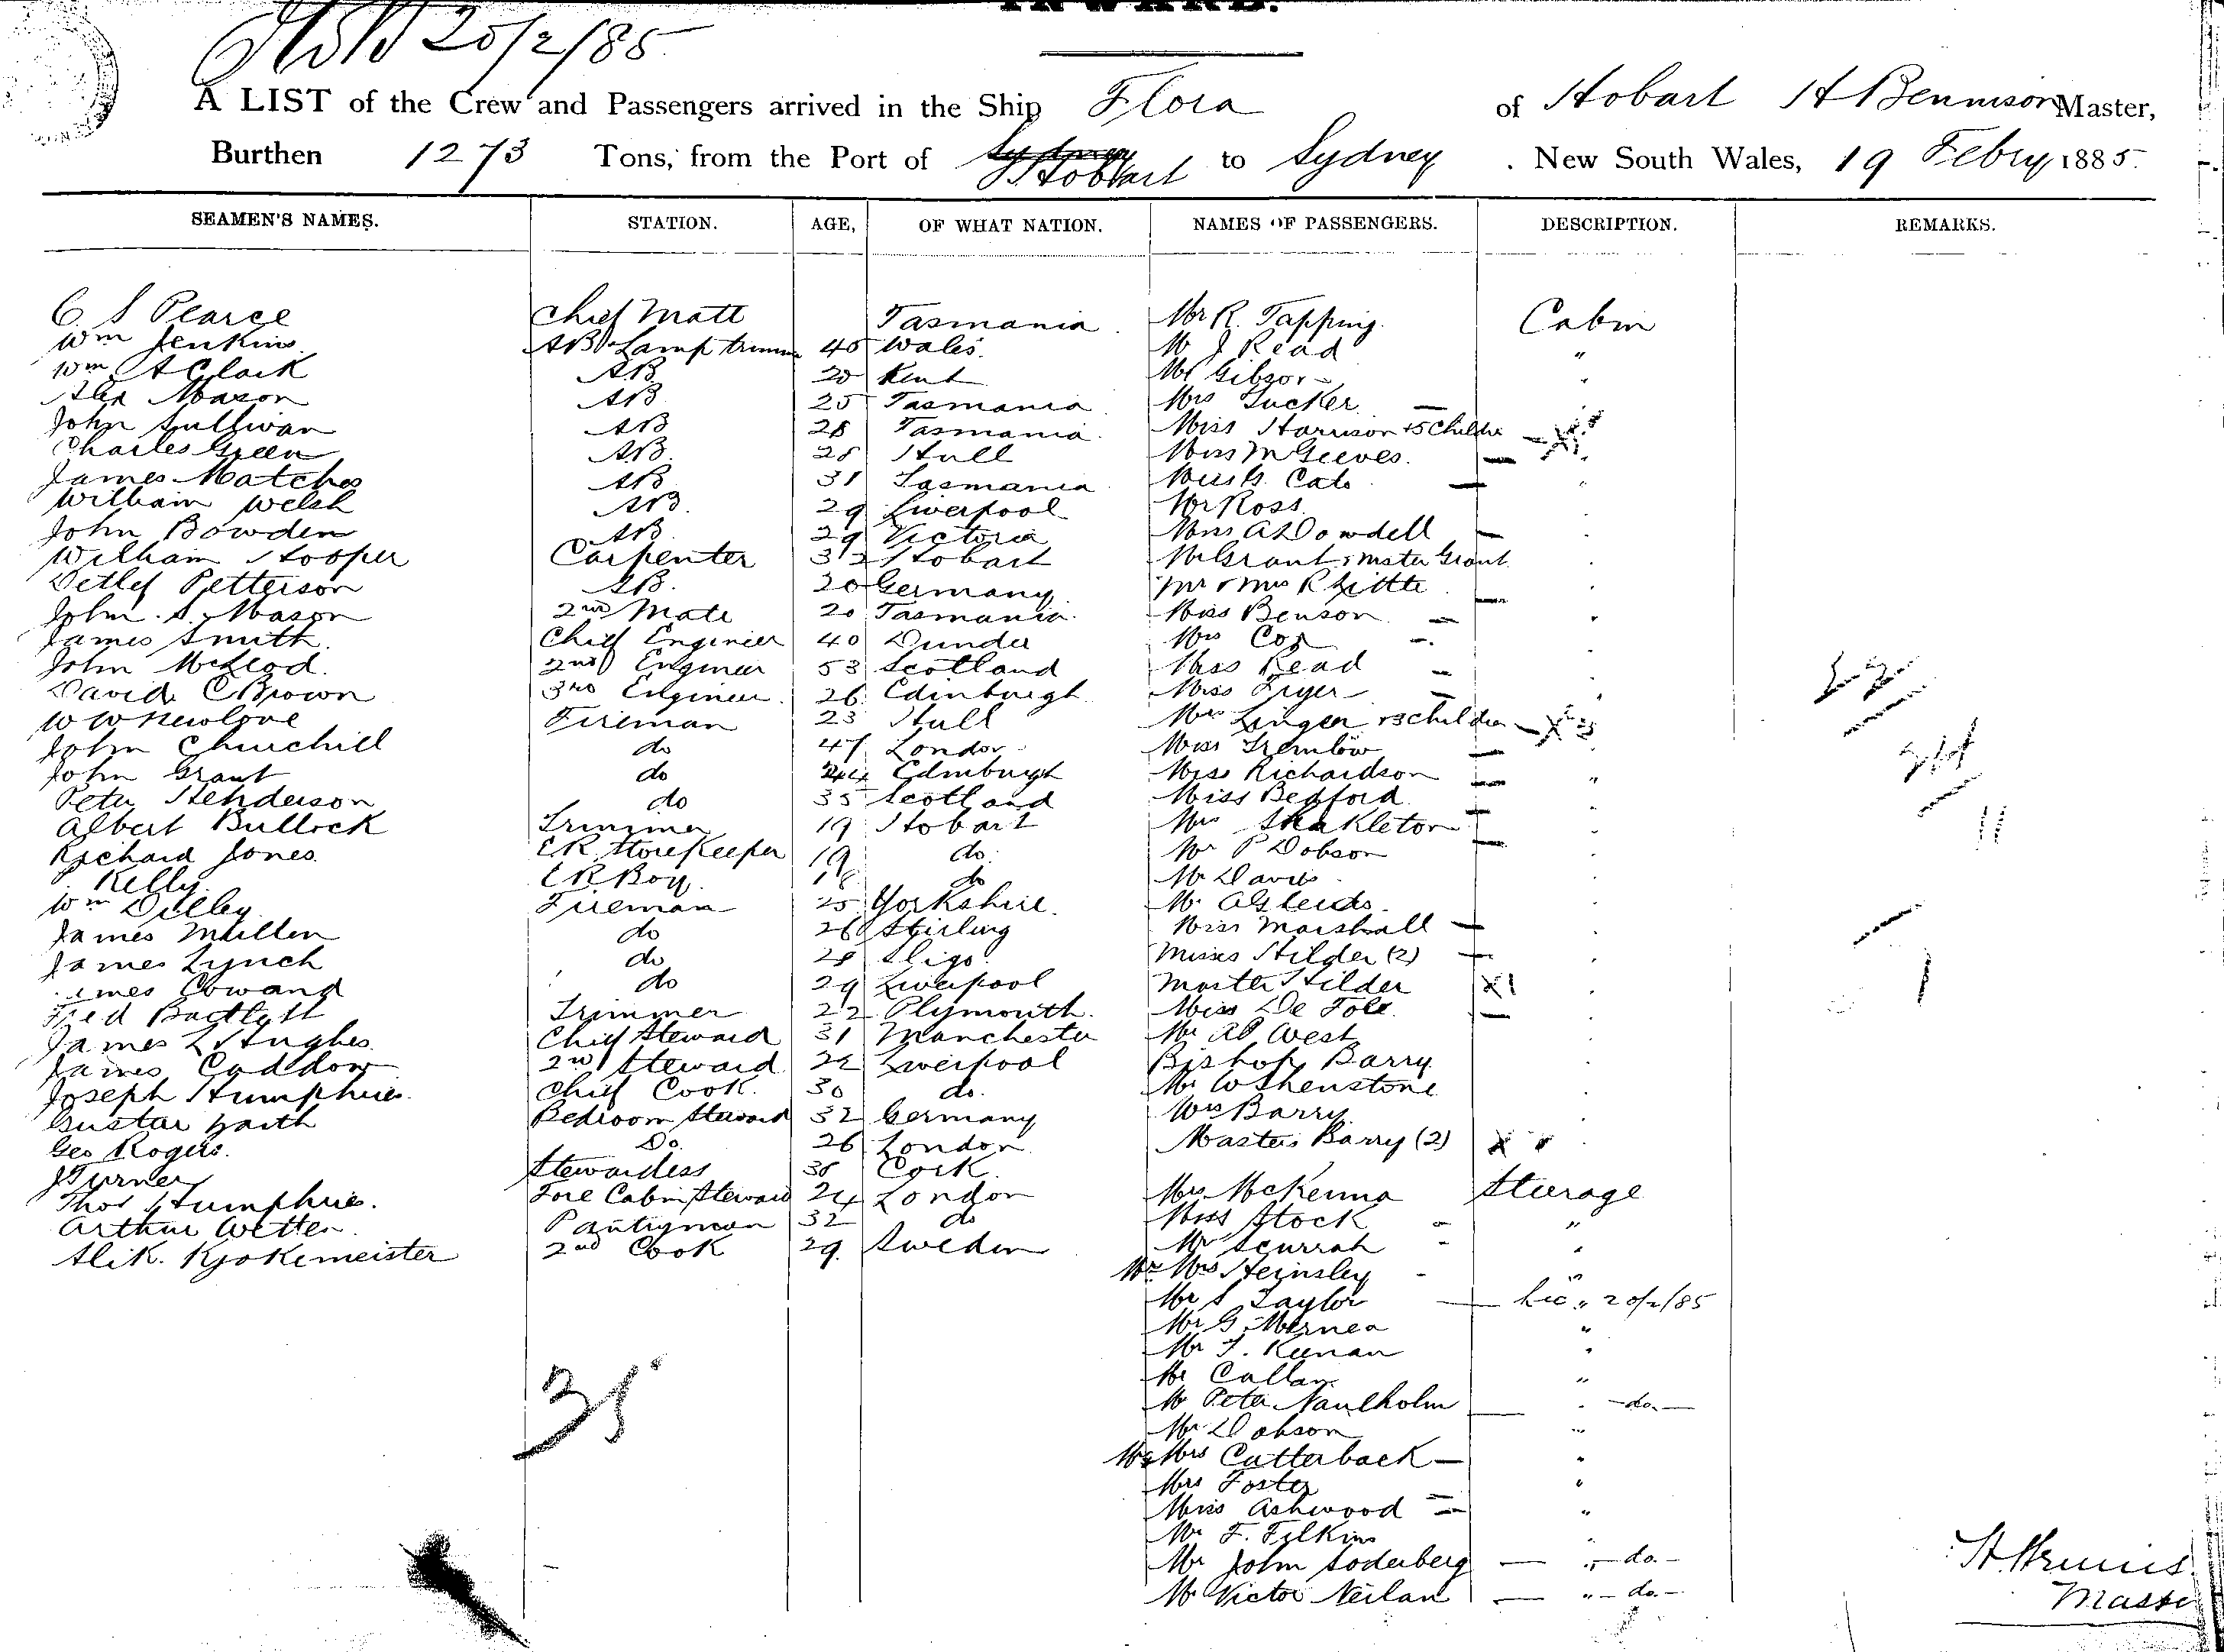 INWARD.
20/2/85
A LIST of the Crew and Passengers arrived in the Ship Flora of Hobart H Bennison Master,
Burthen 1273 Tons, from the Port of Sydney Hobart to Sydney . New South Wales, 19 Febry 1885.
SEAMEN'S NAMES. STATION. AGE, OF WHAT NATION. NAMES OF PASSENGERS. DESCRIPTION. REMARKS.
C. S Pearce Chief Mate Tasmania Mr R. Tapping. Cabin
Wm Jenkins AB Lamp trimmer 45 Wales. M J Read "
Wm H Clark A.B. 20 Kent Mr Gibson "
Alex Mason AB 25 Tasmania Mrs Tucker
John Sullivan AB 28 Tasmania. Miss Harrison + 5 Childn
Charles Green AB. 28 Hull Miss McGeeves.
James Matches AB 31 Tasmania Cato
William Welsh AB. 29 Liverpool Mr Ross
John Bowden AB 29 Victoria Dowdell
William Hooper Carpenter 32 Hobart Mr Grant & Master Grant
Detlef Petterson AB. 20 Germany Mr & Mrs
John. S. Mason 2nd Mate 20 Tasmania. Miss Benson
James Smith. Chief Engineer 40 Dundee Mrs Cox
John McLeod. 2nd Engineer 53 Scotland Miss Read
David C Brown 3rd Engineer. 26 Edinburgh Miss Fryer
W W Newlove Fireman 23 Hull Mrs Linger + 3 Children
John Churchill do 47 London Miss Tremlow
John Grant do 44 Edinburgh Miss Richardson "
Peter Henderson do 35 Scotland Miss Bedford.
Albert Bullock Trimmer 19 Hobart Mrs Shakleton
Richard Jones. E.R. Storekeeper 19 do. Mr P Dobson
J. Kelly. E R Boy. 18 do Mr Davis
Wm Dilley Fireman 25 Yorkshire. Mr
James Mullen do 26 Stirling Miss Marshall
James Lynch do 28 Sligo. Misses Hilder (2)
James Cowand do 29 Liverpool Master Hilder X1
Fred Bartlett Trimmer 22 Plymouth. Miss De
James L Hughes. Chief Steward 31 Manchester Mr West
James Caddow 2nd Steward 22 Liverpool Bishop Barry
Joseph Humphries. Chief Cook. 30 do. Mr W Shenstone
Gustav Bedroom Steward 32 Germany Mrs Barry
Geo Rogers. Do. 26 London Masters Barry (2)
J Turner Stewardess 38 Cork.
Thos Humphries. Fore Cabin Steward 24 London Mrs McKenna Steerage
Arthur Wetten. Pantryman 32 do Miss Stock "
Alik. Kjokemeister 2nd Cook 29. Sweden Mr Scurrah "
Mr Mrs Heinsley "
Mr S Taylor 20/2/85
Mr G. "
Mr T. Keenan "
Mr Callan "
35
Mr Peter Naulholm do.
Mr Dobson "
Mr & Mrs Cutterback "
Mrs Foster "
Miss Ashwood "
Mr F. Filkins
Mr John Soderberg " do.
Mr Victor Neilan " do.
Master